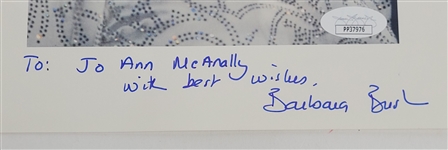 PP37976
To: Jo Ann McAnally
with best wishes,
Barbara Bush